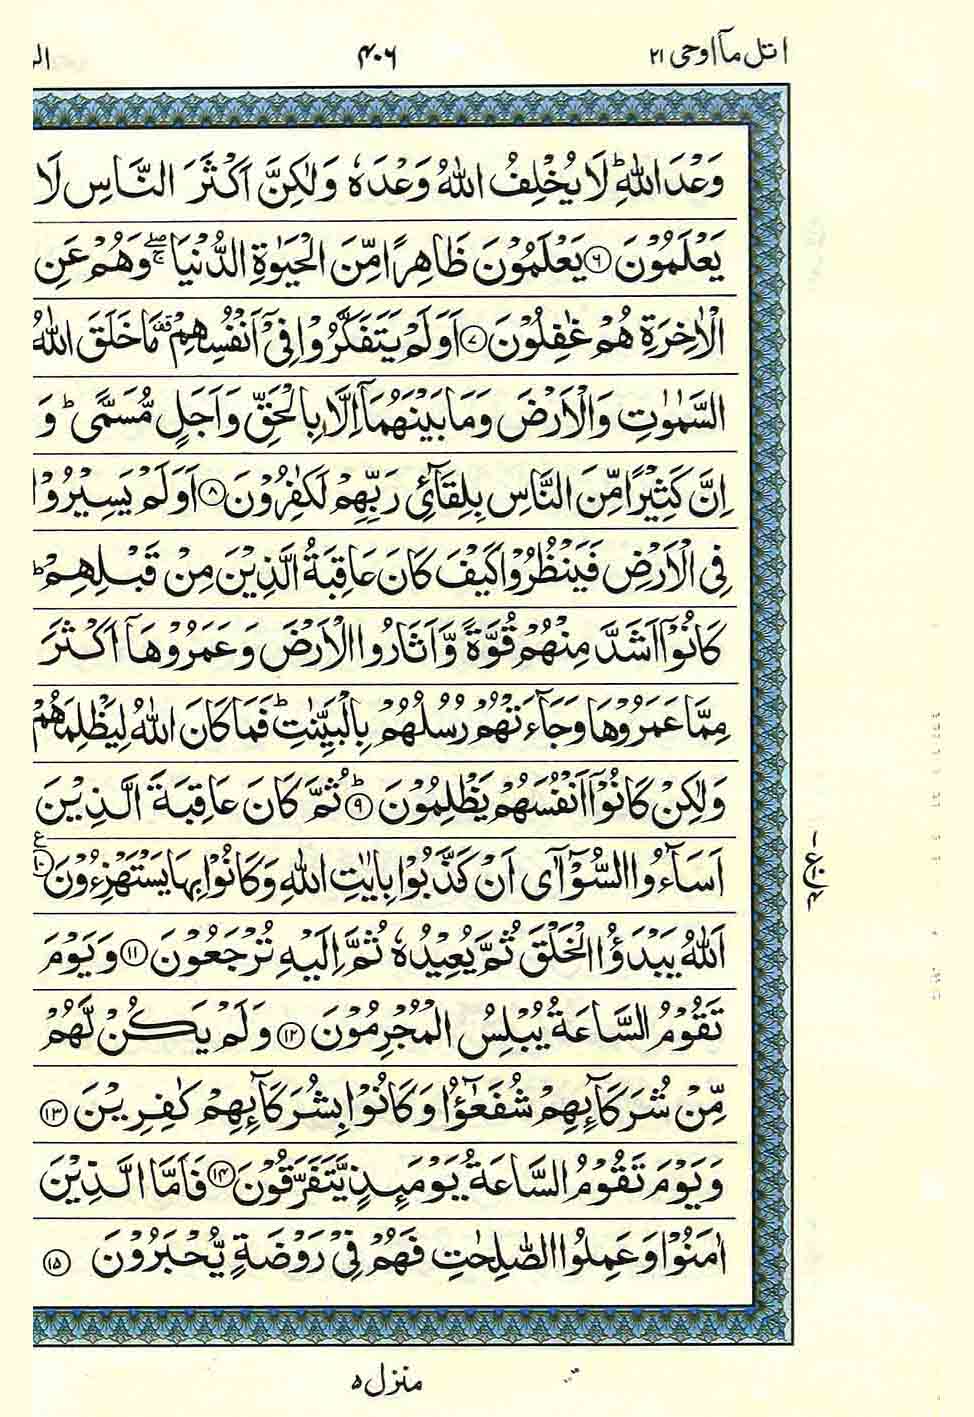 اتل مآ اوحی ۲۱
۴۰۶
الر
وَعْدَ اللّٰهِ ؕ لَا یُخْلِفُ اللّٰهُ وَعْدَهٗ وَلٰكِنَّ اَكْثَرَ النَّاسِ لَا
یَعْلَمُوْنَ ۝۶ یَعْلَمُوْنَ ظَاهِرًا مِّنَ الْحَیٰوةِ الدُّنْیَا ۖۚ وَهُمْ عَنِ
الْاٰخِرَةِ هُمْ غٰفِلُوْنَ ۝۷ اَوَلَمْ یَتَفَكَّرُوْا فِیْۤ اَنْفُسِهِمْ ۫ مَا خَلَقَ اللّٰهُ
السَّمٰوٰتِ وَالْاَرْضَ وَمَا بَیْنَهُمَاۤ اِلَّا بِالْحَقِّ وَاَجَلٍ مُّسَمًّی ؕ وَ
اِنَّ كَثِیْرًا مِّنَ النَّاسِ بِلِقَآئِ رَبِّهِمْ لَكٰفِرُوْنَ ۝۸ اَوَلَمْ یَسِیْرُوْا
فِی الْاَرْضِ فَیَنْظُرُوْا كَیْفَ كَانَ عَاقِبَةُ الَّذِیْنَ مِنْ قَبْلِهِمْ ؕ
كَانُوْۤا اَشَدَّ مِنْهُمْ قُوَّةً وَّاَثَارُوا الْاَرْضَ وَعَمَرُوْهَاۤ اَكْثَرَ
مِمَّا عَمَرُوْهَا وَجَآءَتْهُمْ رُسُلُهُمْ بِالْبَیِّنٰتِ ؕ فَمَا كَانَ اللّٰهُ لِیَظْلِمَهُمْ
وَلٰكِنْ كَانُوْۤا اَنْفُسَهُمْ یَظْلِمُوْنَ ۝۹ؕ ثُمَّ كَانَ عَاقِبَةَ الَّذِیْنَ
اَسَآءُوا السُّوْۤاٰۤی اَنْ كَذَّبُوْا بِاٰیٰتِ اللّٰهِ وَكَانُوْا بِهَا یَسْتَهْزِءُوْنَ ۝۱۰ع
اَللّٰهُ یَبْدَؤُا الْخَلْقَ ثُمَّ یُعِیْدُهٗ ثُمَّ اِلَیْهِ تُرْجَعُوْنَ ۝۱۱ وَیَوْمَ
تَقُوْمُ السَّاعَةُ یُبْلِسُ الْمُجْرِمُوْنَ ۝۱۲ وَلَمْ یَكُنْ لَّهُمْ
مِّنْ شُرَكَآىِٕهِمْ شُفَعٰٓؤُا وَكَانُوْا بِشُرَكَآىِٕهِمْ كٰفِرِیْنَ ۝۱۳
وَیَوْمَ تَقُوْمُ السَّاعَةُ یَوْمَىِٕذٍ یَّتَفَرَّقُوْنَ ۝۱۴ فَاَمَّا الَّذِیْنَ
اٰمَنُوْا وَعَمِلُوا الصّٰلِحٰتِ فَهُمْ فِیْ رَوْضَةٍ یُّحْبَرُوْنَ ۝۱۵
منزل ۵